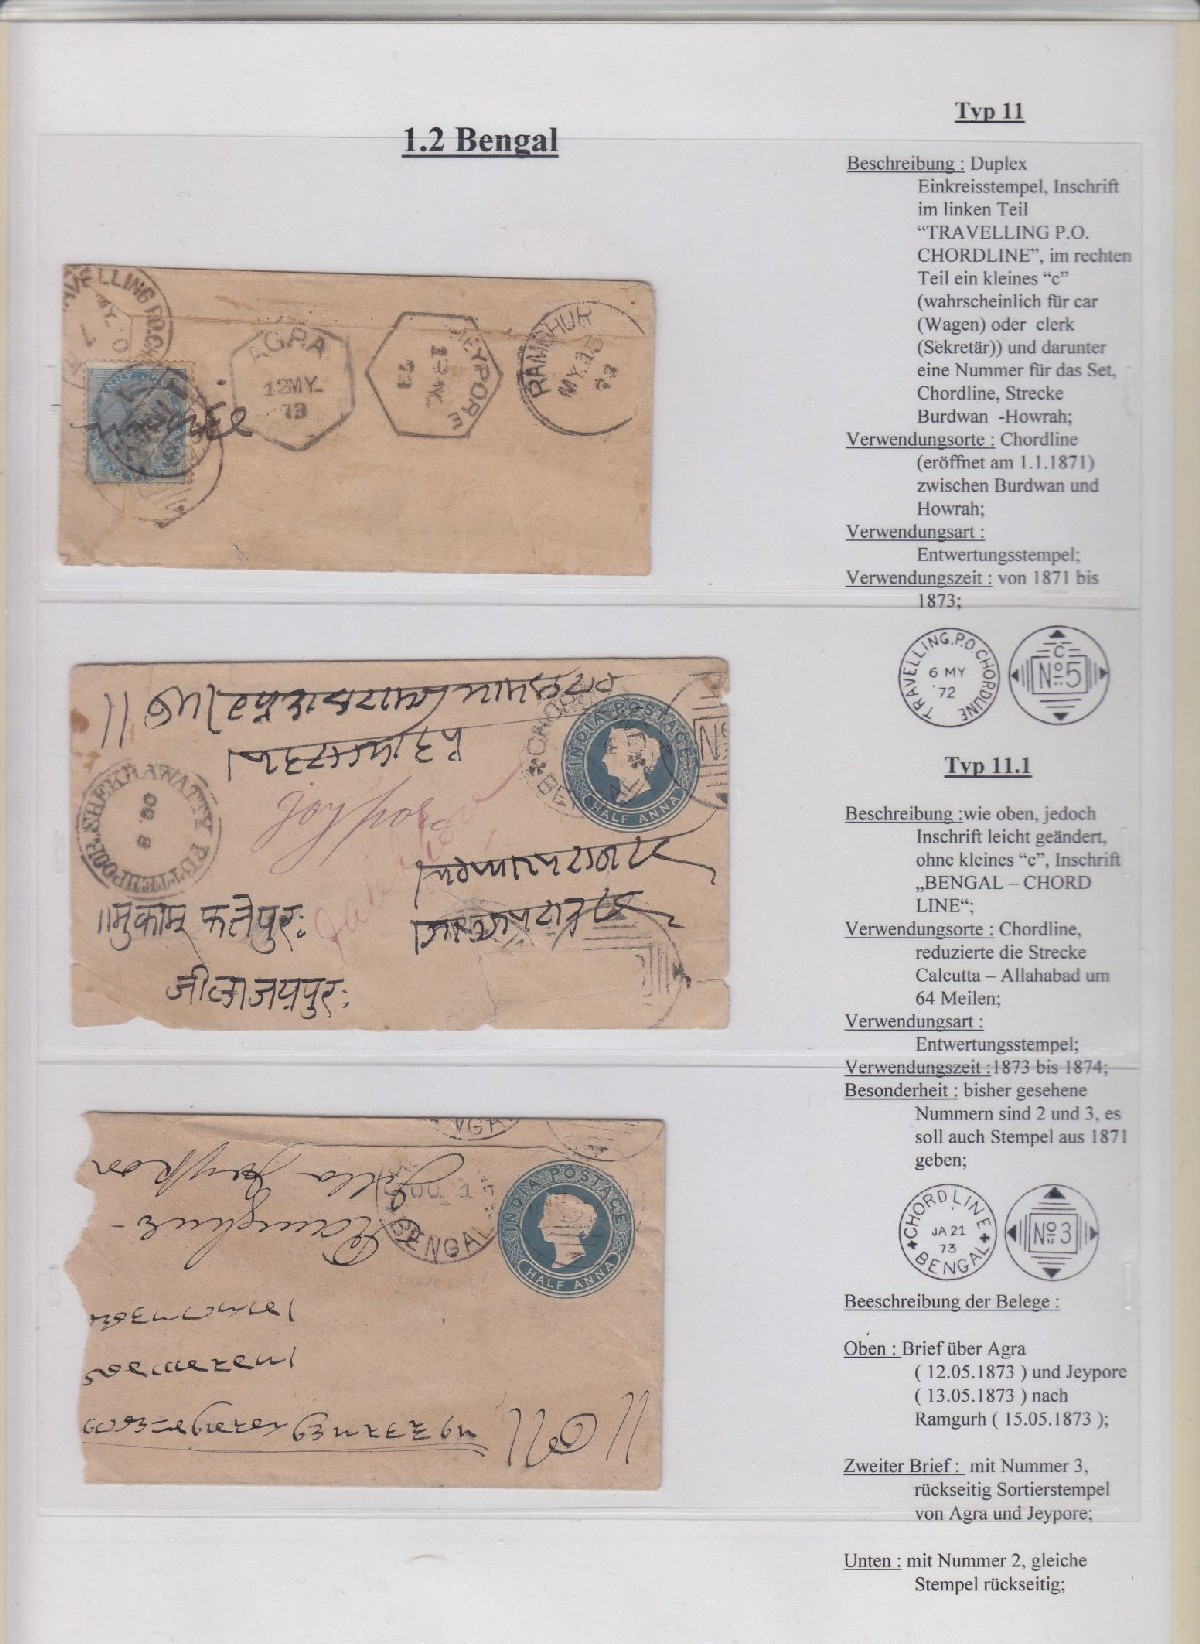 1.2 Bengal
Typ 11
Beschreibung : Duplex
Einkreisstempel, Inschrift
im linken Teil
“TRAVELLING P.O.
CHORDLINE”, im rechten
Teil ein kleines “c”
(wahrscheinlich für car
(Wagen) oder clerk
(Sekretär)) und darunter
eine Nummer für das Set,
Chordline, Strecke
Burdwan -Howrah;
Verwendungsorte : Chordline
(eröffnet am 1.1.1871)
zwischen Burdwan und
Howrah;
Verwendungsart :
Entwertungsstempel;
Verwendungszeit : von 1871 bis
1873;
TRAVELLING.P.O CHORDLINE
6 MY
'72
C
No 5
Typ 11.1
Beschreibung :wie oben, jedoch
Inschrift leicht geändert,
ohne kleines “c”, Inschrift
„BENGAL – CHORD
LINE“;
Verwendungsorte : Chordline,
reduzierte die Strecke
Calcutta – Allahabad um
64 Meilen;
Verwendungsart :
Entwertungsstempel;
Verwendungszeit :1873 bis 1874;
Besonderheit : bisher gesehene
Nummern sind 2 und 3, es
soll auch Stempel aus 1871
geben;
CHORD LINE
JA 21
73
BENGAL
No 3
Beeschreibung der Belege :
Oben : Brief über Agra
( 12.05.1873 ) und Jeypore
( 13.05.1873 ) nach
Ramgurh ( 15.05.1873 );
Zweiter Brief : mit Nummer 3,
rückseitig Sortierstempel
von Agra und Jeypore;
Unten : mit Nummer 2, gleiche
Stempel rückseitig;
AVELLING P.O.CH
AGRA
12MY
73
JEYPORE
73
RAMGHUR
MY.15
INDIA POSTAGE
HALF ANNA
SHEKRAWATTY
Joypore
॥मुकाम फतेपुर:
जीलाजयपुर:
BENGAL
INDIA POSTAGE
HALF ANNA